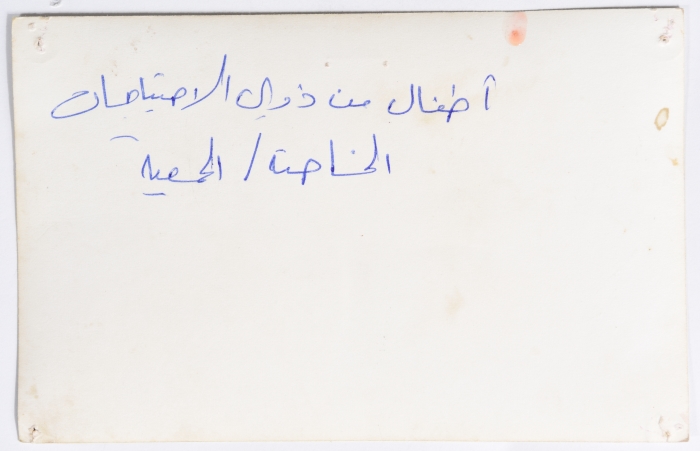 أطفال من ذوي الاحتياجات
الخاصة / الجمعية